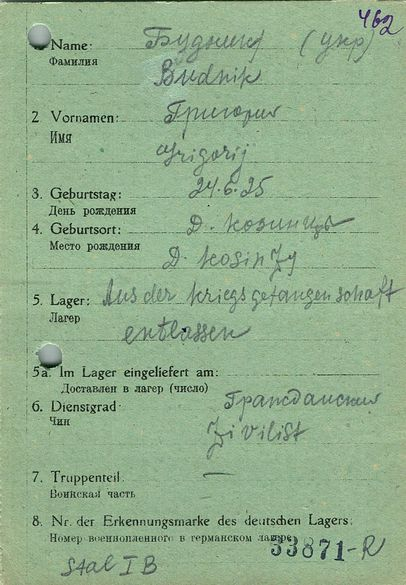 462
1. Name: Будник (укр)
Фамилия
Budnik
2 Vornamen: Григорий
Имя
Grigorij
3. Geburtstag: 24.6.25
День рождения
4. Geburtsort: Д. Козинцы
Место рождения
D. Kosinzy
5. Lager: Aus der Kriegsgefangenschaft
Лагер
entlassen
5a. Im Lager eingeliefert am:
Доставлен в лагер (число)
6. Dienstgrad: Гражданский
Чин
Zivilist
7. Truppenteil: —
Воинская часть
8. Nr. der Erkennungsmarke des deutschen Lagers:
Номер военнопленного в германском лагере
33871-R
Stal I B